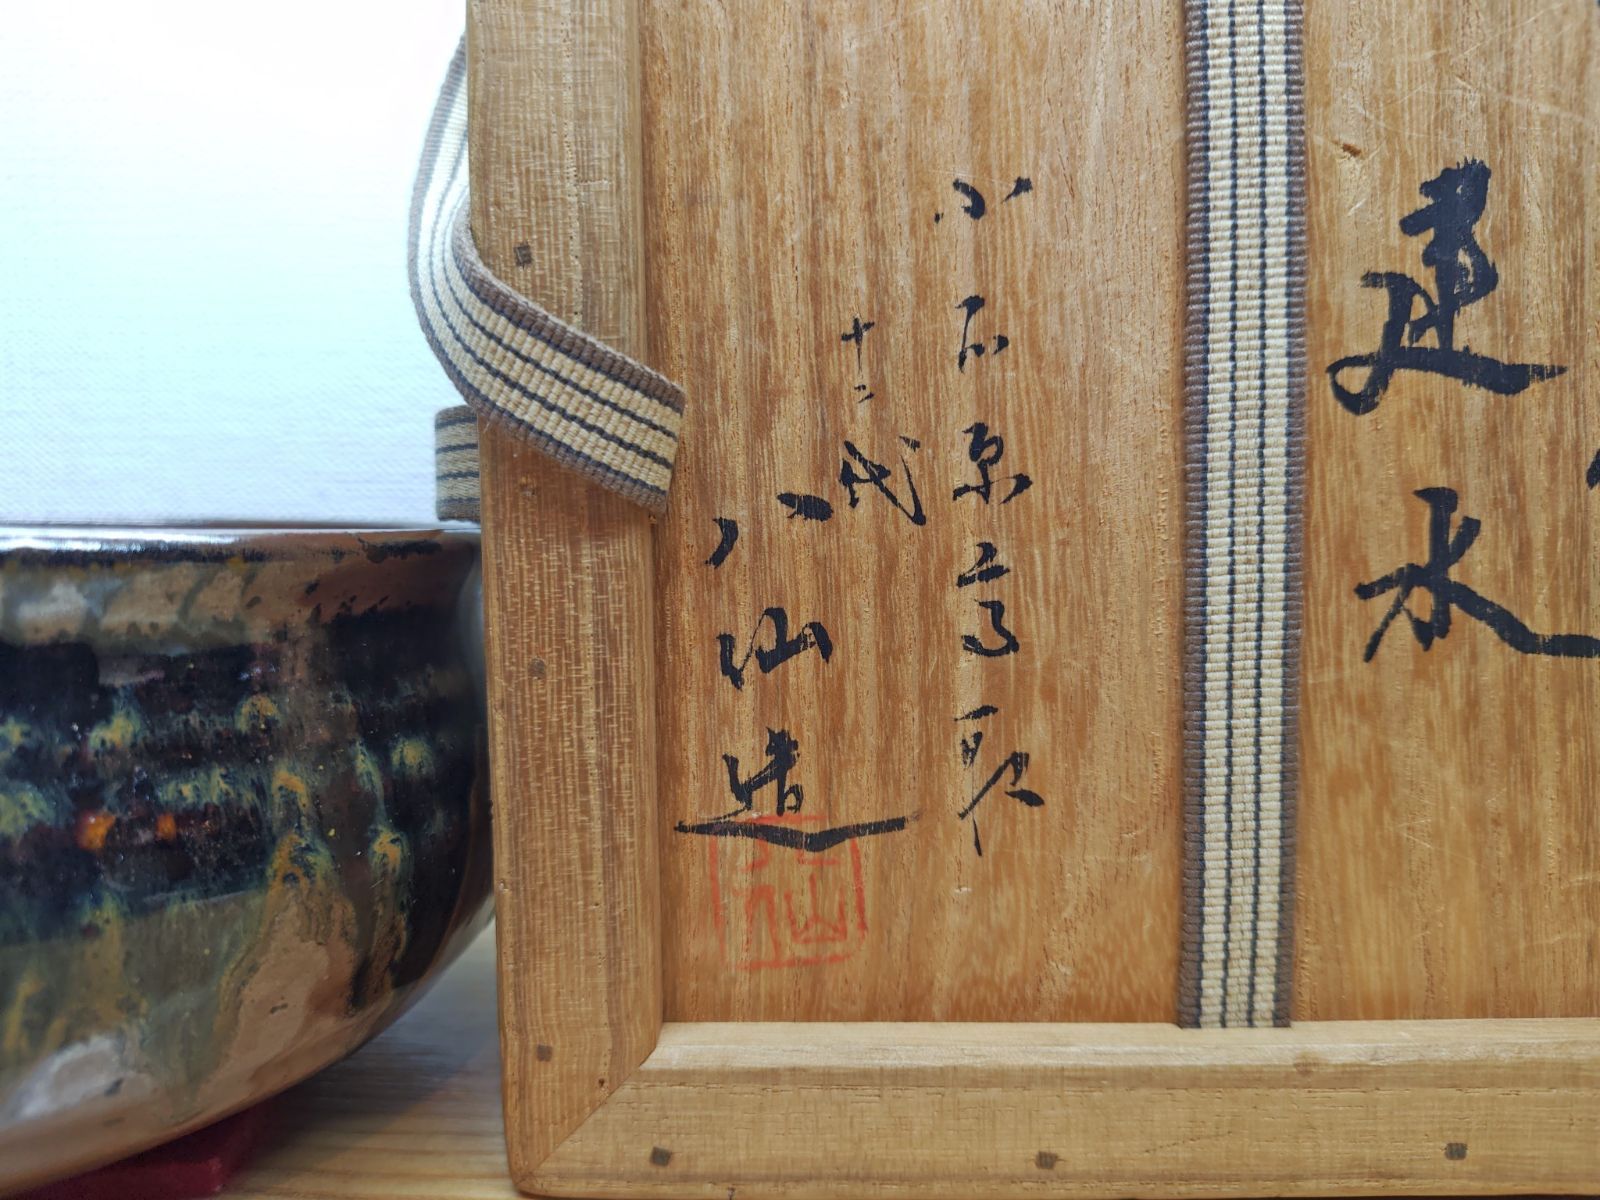 建水
小石原高取
十二代
八仙造
八仙